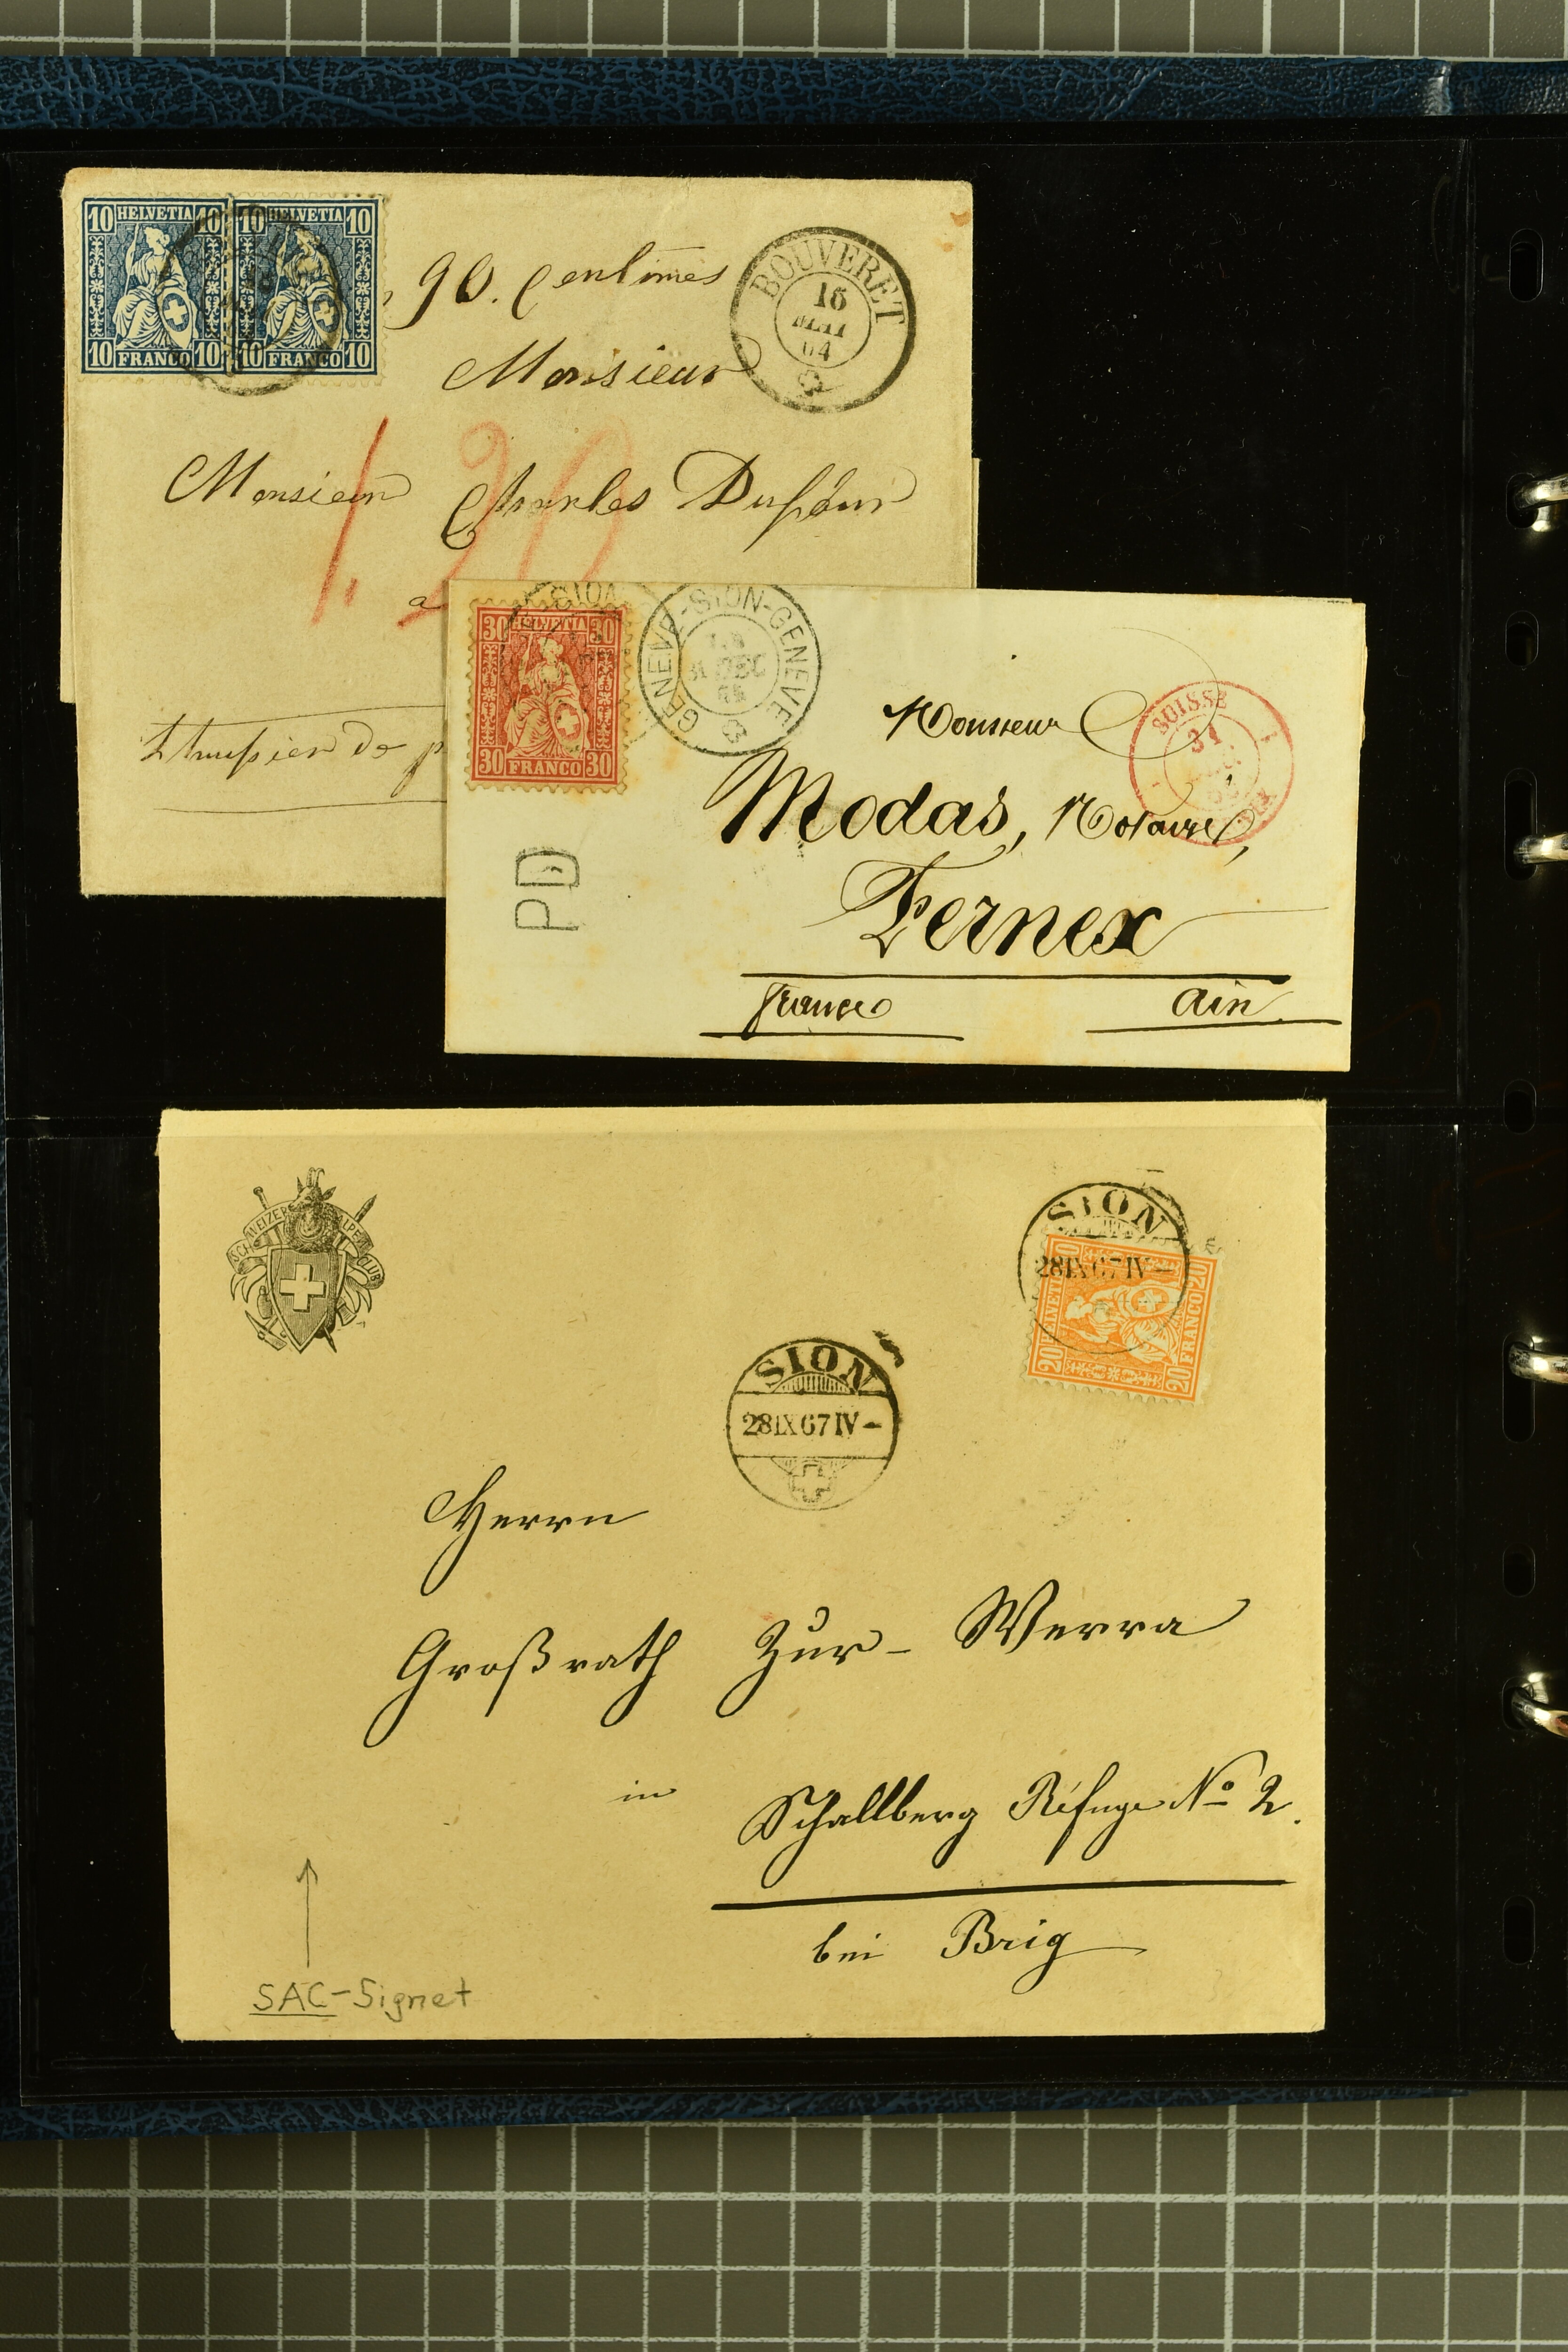 10 HELVETIA 10 10 HELVETIA 10
10 FRANCO 10 10 FRANCO 10
90. Centimes
BOUVERET
16
MAI
64
Monsieur
Monsieur Charles Dufour
1.20
a
SION
30 HELVETIA 30
30 FRANCO 30
GENEVE-SION-GENEVE
31 DEC
SUISSE
31
Monsieur
Modas, Notaire,
Fernex
France Ain
PD
SCHWEIZER ALPEN CLUB
SION
28IX67IV-
20 20
20 FRANCO 20
SION
28IX67IV-
Herrn
Großrath Zur-Werra
in Schallberg Réfuge No 2.
bei Brig
SAC-Signet